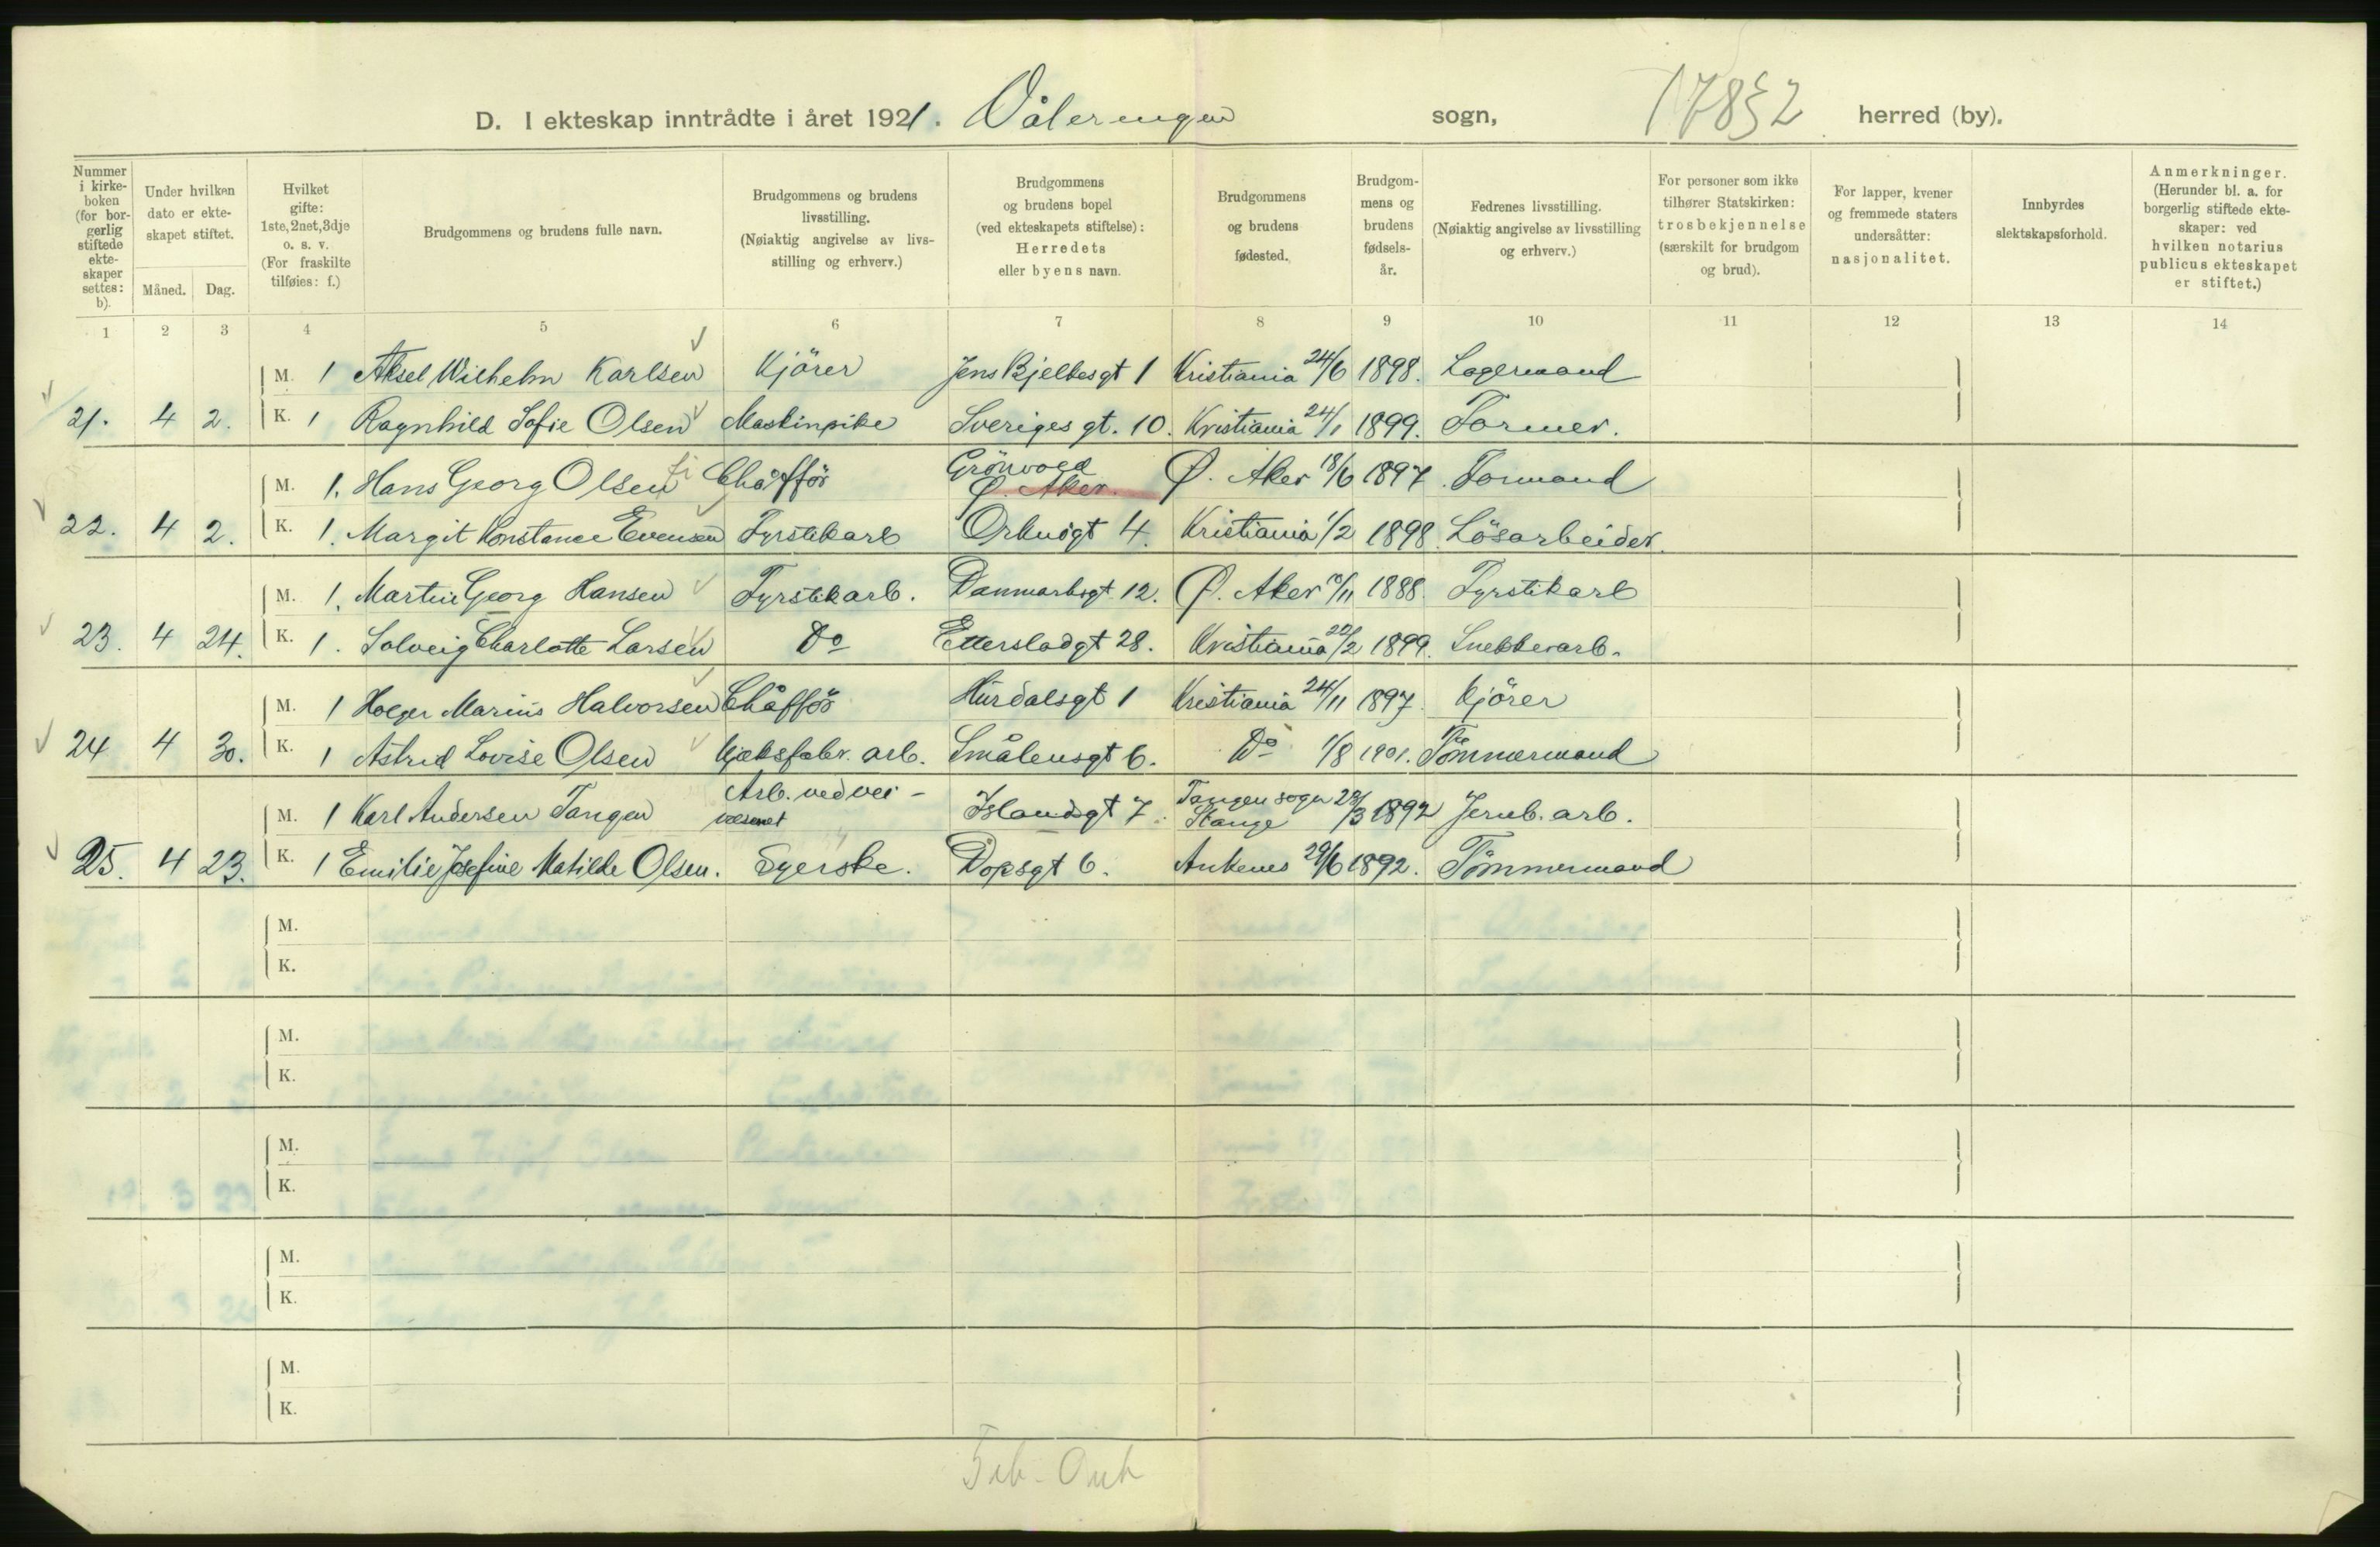 D. I ekteskap inntrådte i året 1921. Våleringen sogn, herred (by).
Nummer i kirke-boken (for bor-gerlig stiftede ekte-skaper settes: b).
Under hvilken dato er ekte-skapet stiftet.
Måned. Dag.
Hvilket gifte: 1ste, 2net, 3dje o. s. v. (For fraskilte tilføies: f.)
Brudgommens og brudens fulle navn.
Brudgommens og brudens livsstilling. (Nøiaktig angivelse av livs-stilling og erhverv.)
Brudgommens og brudens bopel (ved ekteskapets stiftelse): Herredets eller byens navn.
Brudgommens og brudens fødested.
Brudgom-mens og brudens fødsels-år.
Fedrenes livsstilling. (Nøiaktig angivelse av livsstilling og erhverv.)
For personer som ikke tilhører Statskirken: trosbekjennelse (særskilt for brudgom og brud).
For lapper, kvener og fremmede staters undersåtter: nasjonalitet.
Innbyrdes slektskapsforhold.
Anmerkninger. (Herunder bl. a. for borgerlig stiftede ekte-skaper: ved hvilken notarius publicus ekteskapet er stiftet.)
1 2 3 4 5 6 7 8 9 10 11 12 13 14
M. 1 Aksel Wilhelm Karlsen Kjörer Jens Bjelkesgt 1 Kristiania 24/6 1898. Lagermand
21. 4 2. K. 1 Ragnhild Sofie Olsen Maskinpike Sveriges gt. 10. Kristiania 24/1 1899. Former.
M. 1. Hans Georg Olsen Chåfför Grönvold Ø. Aker. Ø. Aker 18/6 1897. Formand
22. 4 2. K. 1. Margit Konstance Evensen Fyrstikarb Orknögt 4. Kristiania 1/2 1898. Lösarbeider.
M. 1. Martin Georg Hansen Fyrstikarb. Danmarksgt 12. Ø. Aker 10/11 1888. Fyrstikarb
23. 4 24. K. 1. Solveig Charlotte Larsen Do Etterstadgt 28. Kristiania 22/2 1899. Snekkerarb.
M. 1 Holger Marius Halvorsen Chåfför Hurdalsgt 1 Kristiania 24/11 1897. Kjörer
24 4 30. K. 1 Astrid Lovise Olsen Kjeksfabr. arb. Smålensgt 6. Do 1/8 1901. Tömmermand
M. 1 Karl Andersen Tangen Arb. ved vei-væsenet Islandsgt 7. Tangen sogn Stange 23/3 1892 Jernb. arb.
25. 4 23. K. 1 Emilie Josefine Matilde Olsen. Syerske. Dopsgt 6. Ankenes 29/6 1892. Tömmermand
M.
K.
M.
K.
M.
K.
M.
K.
M.
K.